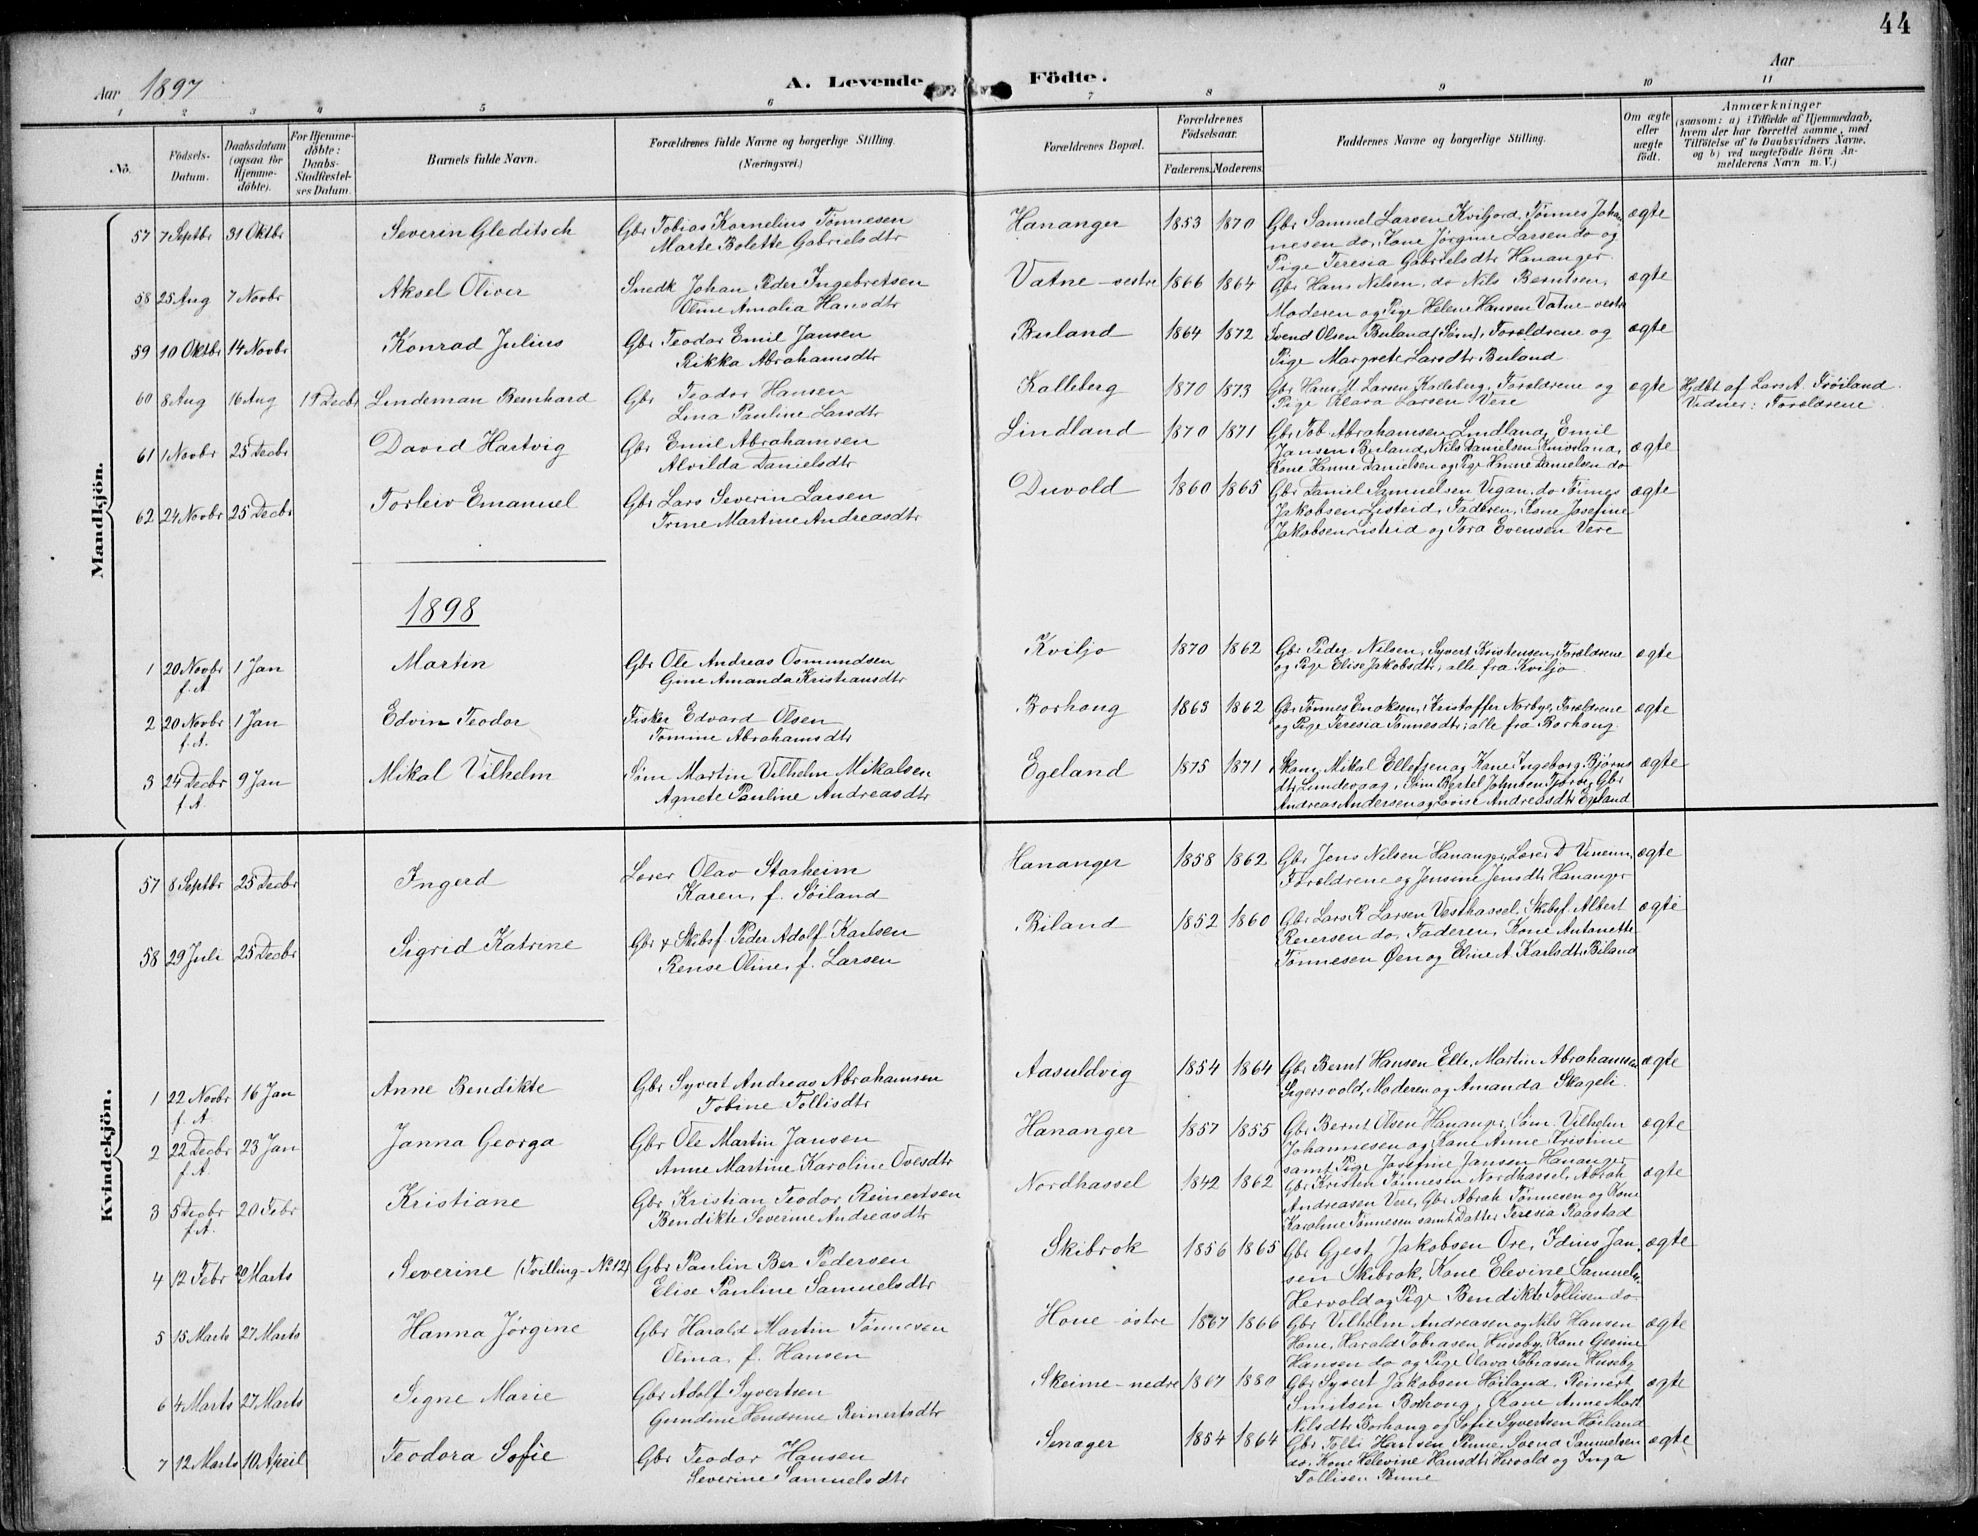 44
Aar 1897 A. Levende Födte. Aar
1 2 3 4 5 6 7 8 9 10 11
No. Födsels-Datum. Daabsdatum (ogsaa för Hjemme-döbte). For Hjemme-döbte: Daabs-Stadfæstel-ses Datum. Barnets fulde Navn. Forældrenes fulde Navne og borgerlige Stilling. (Næringsvei.) Forældrenes Bopæl. Forældrenes Födselsaar. Faderens. Moderens. Faddernes Navne og borgerlige Stilling. Om ægte eller uægte födt. Anmærkninger (saasom: a) i Tilfælde af Hjemmedaab, hvem der har forrettet samme, med Tilföielse af to Daabsvidners Navne, og b) ved uægtefödte Börn An-melderens Navn m. V.)
Mandkjön.
57 7 Septbr 31 Oktbr Severin Gleditsch Gbr Tobias Kornelius Tønnesen Hananger 1853 1870 Gbr Samuel Larsen Kviljord, Tønnes Johan ægte
Marte Bolette Gabrielsdtr nesen do, Kone Jørgine Larsen do og
Pige Teresia Gabrielsdtr Hananger
58 25 Aug 7 Novbr Aksel Oliver Snedk Johan Peder Ingebretsen Vatne-vestre 1866 1864 Gbr Hans Nilsen, do Nils Berntsen, ægte
Oline Amalia Hansdtr Moderen og Pige Helene Hansen Vatne-vestr
59 10 Oktbr 14 Novbr Konrad Julius Gbr Teodor Emil Jansen Buland 1864 1872 Svend Olsen Buland (Søm), Forældrene og ægte
Rikka Abrahamsdtr Pige Margrete Larsdtr Buland
60 8 Aug 16 Aug 19 Decbr Lindeman Bernhard Gbr Teodor Hansen Kalleberg 1870 1873 Gbr Hans M. Larsen Kalleberg, Forældrene og ægte Hjdbt af Lars A. Frøiland.
Lina Pauline Larsdtr Pige Klara Larsen Vere Vidner: Forældrene.
61 1 Novbr 25 Decbr David Hartvig Gbr Emil Abrahamsen Lindland 1870 1871 Gbr Tob. Abrahamsen Lindland, Emil
Alvilda Danielsdtr Jansen Buland, Nils Danielsen ægte
Kone Hanne Danielsen og Pige Hanne Danielsen do
62 24 Novbr 25 Decbr Torleiv Emanuel Gbr Lars Severin Larsen Duvold 1860 1865 Gbr Daniel Samuelsen Vigan, do Tønnes ægte
Trine Martine Andreasdtr Jakobsen Listeid, Faderen, Kone Josefine
Jakobsen Listeid og Tora Evensen Vere
1898
1 20 Novbr f. A 1 Jan Martin Gbr Ole Andreas Osmundsen Kviljo 1870 1862 Gbr Peder Nilsen, Syvert Kristensen, Forældrene ægte
Gine Amanda Kristiansdtr og Pige Elise Jakobsdtr, alle fra Kviljo
2 20 Novbr f. A. 1 Jan Edvin Teodor Fisker Edvard Olsen Borhaug 1863 1862 Gbr Tønnes Enoksen, Kristoffer Norbye, Forældrene ægte
Tomine Abrahamsdtr og Pige Teresia Tønnesdtr; alle fra Borhaug.
3 24 Decbr f. A 9 Jan Mikal Vilhelm Søm Martin Vilhelm Mikalsen Egeland 1875 1871 Skom Mikal Ellefsen og Kone Ingeborg Bjørns ægte
Agnete Pauline Andreasdtr dtr Lundevaag, Søm Bertel Johnsen Tjørve, Gbr
Andreas Andersen og Lovise Andreasdtr Egeland
Kvindekjön.
57 8 Septbr 25 Decbr Ingerd Lærer Olav Starheim Hananger 1858 1862 Gbr Jens Nilsen Hananger, Lærer D Vinenn, ægte
Karen, f. Søiland Forældrene og Jensine Jensdtr Hananger
58 29 Juli 25 Decbr Sigrid Katrine Gbr & Skibsf. Peder Adolf Karlsen Biland 1852 1860 Gbr Lars R Larsen Vesthassel, Skibsf. Albert ægte
Rense Oline, f. Larsen Reiersen do, Faderen, Kone Antonette
Tønnesen Øen og Eline A. Karlsdtr Biland
1 22 Novbr f. A. 16 Jan Anne Bendikte Gbr Syvert Andreas Abrahamsen Aasuldvig 1854 1864 Gbr Bernt Hansen Elle, Martin Abrahamsen ægte
Tobine Tollisdtr Sigersvold, Moderen og Amanda Skageli.
2 22 Decbr f. A 23 Jan Janna Georga Gbr Ole Martin Jansen Hananger 1857 1855 Gbr Bernt Olsen Hananger, Søm. Vilhelm ægte
Anne Martine Karoline Ovesdtr Johannesen og Kone Anne Kristine
samt Pige Josefine Jansen Hananger
3 5 Decbr f. A. 20 Febr Kristiane Gbr Kristian Teodor Reinertsen Nordhassel 1842 1862 Gbr Kristen Tønnesen Nordhassel, Abrah ægte
Bendikte Severine Andreasdtr Andreasen Vere, Gbr Abrah Tønnesen og Kone
Karoline Tønnesen samt Datter Teresia Raastad
4 12 Febr 20 Marts Severine (Tvilling-No 12) Gbr Paulin Ber Pedersen Skibrok 1856 1865 Gbr Gjest Jakobsen Ore, Idius Jan ægte
Elise Pauline Samuelsdtr sen Skibrok, Kone Elevine Samuels
Hervold og Pige Bendikte Tollisen do
5 15 Marts 27 Marts Hanna Jørgine Gbr Harald Martin Tønnesen Hone-østre 1867 1866 Gbr Vilhelm Andreasen og Nils Hansen ægte
Olina, f. Hansen Hone, Harald Tobiasen Huseby, Kone Gesine
Hansen do og Pige Olava Tobiasen Huseby
6 4 Marts 27 Marts Signe Marie Gbr Adolf Syvertsen Skeime-nedre 1867 1880 Gbr Syvert Jakobsen Høiland, Reinert ægte
Gundine Hendrine Reinertsdtr Smitsen Borhaug, Kone Anne Mart
Nilsdtr Borhaug og Sofie Syvertsen Høiland
7 12 Marts 10 April Teodora Sofie Gbr Teodor Hansen Snager 1854 1864 Gbr Tolli Hansen Penne, Svend Samuelsen ægte
Severine Samuelsdtr do, Kone Helevine Hansdtr Hervold og Inga
Tollisen Penne